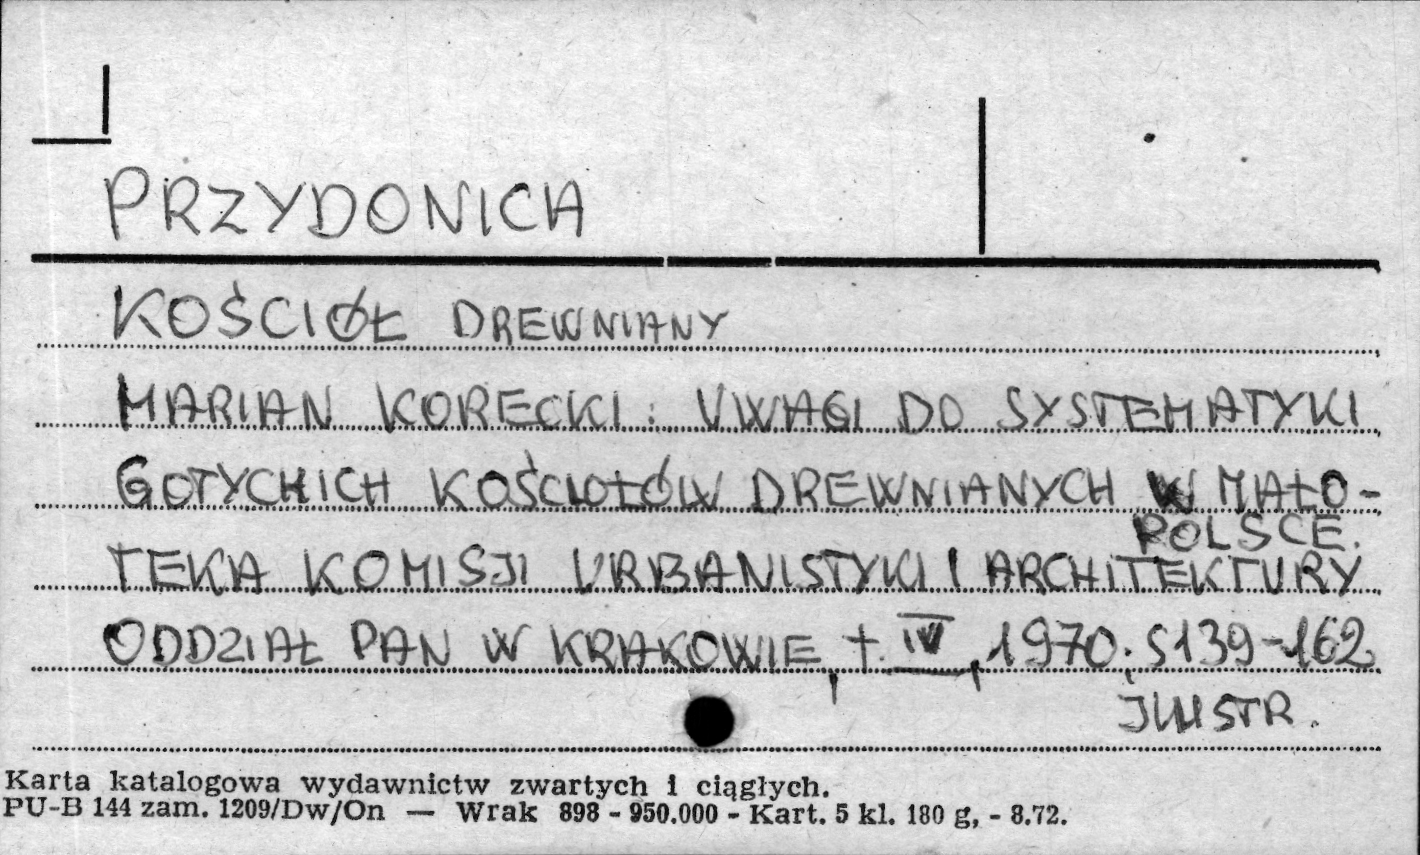 PRZYDONICA
KOŚCIÓŁ DREWNIANY
MARIAN KORECKI: UWAGI DO SYSTEMATYKI
GOTYCKICH KOŚCIOŁÓW DREWNIANYCH W MAŁO-
POLSCE.
TEKA KOMISJI URBANISTYKI I ARCHITEKTURY
ODDZIAŁ PAN W KRAKOWIE, t. IV, 1970. S 139-162
ILUSTR.
Karta katalogowa wydawnictw zwartych i ciągłych.
PU-B 144 zam. 1209/Dw/On — Wrak 898 - 950.000 - Kart. 5 kl. 180 g, - 8.72.